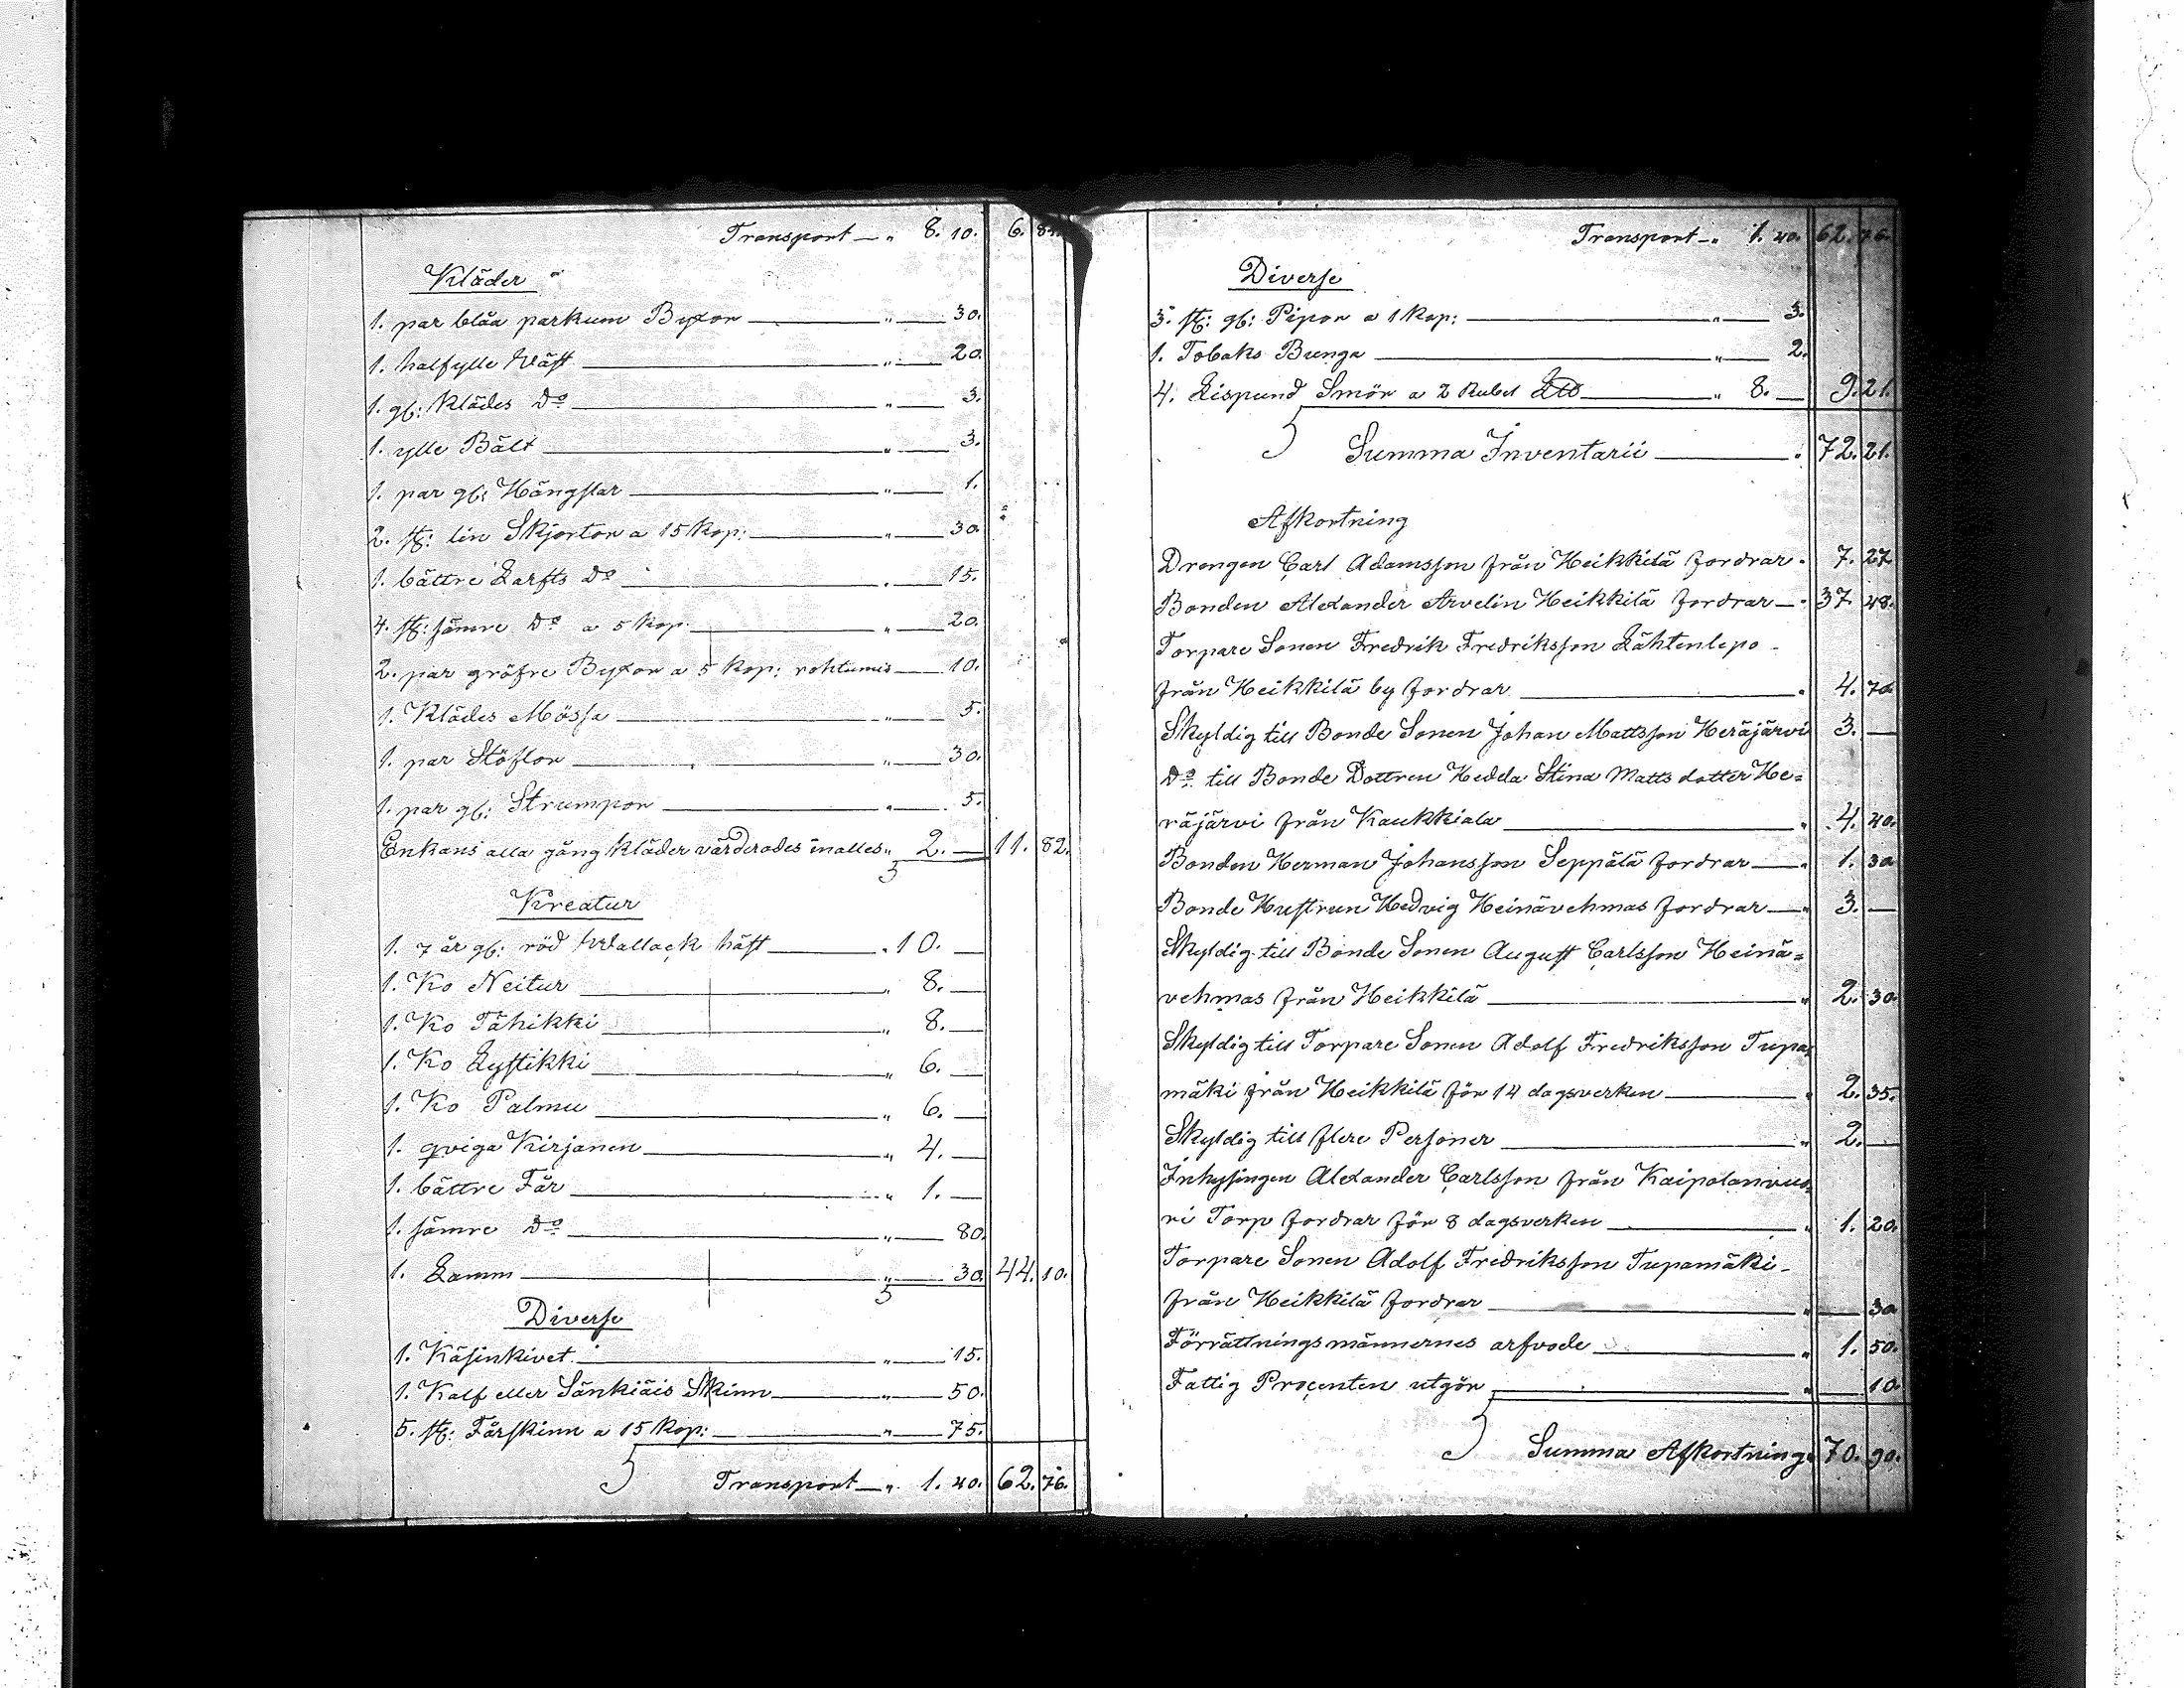 Transport — " 8. 10. 6. 84.
Kläder
1. par blåa parkum Byxor " 30.
1. halfylle Wäst " 20.
1. gl: Klädes Do " 3.
1. ylle Bält " 3.
1. par gl: Hängslar " 1.
2. st: lin Skjortor a 15 Kop: " 30.
1. bättre Larfts Do " 15.
4. st: sämre Do a 5 Kop. " 20.
2. par gröfre Byxor a 5 Kop: rohtumis 10.
1. Klädes Mössa " 5.
1. par Stöflor " 30.
1. par gl: Strumpor " 5.
Enkans alla gång kläder värderades inalles " 2. — 11. 82.
Kreatur
1. 7 år gl: röd Wallack häst " 10. —
1. Ko Neitur " 8. —
1. Ko Tähikki " 8. —
1. Ko Lystikki " 6. —
1. Ko Palmu " 6. —
1. qviga Kirjanen " 4. —
1. bättre Får " 1. —
1. sämre Do " 80.
1. Lamm " 30. 44. 10.
Diverse
1. Käsinkivet " 15.
1. Kalf eller Sänkiäis Skinn " 50.
5. st: Fårskinn a 15 Kop: " 75.
Transport — " 1. 40. 62. 76.
Transport — " 1. 40. 62. 76.
Diverse
3. st: gl: Pipor a 1 Kop: " 3.
1. Tobaks Bunga " 2.
4. Lispund Smör a 2 Rubel " 8. — 9. 21.
Summa Inventarii " 72. 21.
Afkortning
Drengen Carl Adamsson från Heikkilä fordrar " 7. 27
Bonden Alexander Arvelin Heikkilä fordrar — " 37. 48.
Torpare Sonen Fredrik Fredriksson Lähtenlepo
från Heikkilä by fordrar " 4. 70.
Skyldig till Bonde Sonen Johan Mattsson Heräjärvi 3. —
Do till Bonde Dottren Hedda Stina Matts dotter He=
räjärvi från Kaukkiala " 4. 40.
Bonden Herman Johansson Seppälä fordrar — " 1. 30
Bonde Hustrun Hedvig Heinävehmas fordrar — " 3. —
Skyldig till Bonde Sonen August Carlsson Heinä=
vehmas från Heikkilä " 2. 30.
Skyldig till Torpare Sonen Adolf Fredriksson Tupa=
mäki från Heikkilä för 14 dagsverken " 2. 35.
Skyldig till flere Personer " 2. —
Inhysingen Alexander Carlsson från Kaipolanvuo=
ri Torp fordrar för 8 dagsverken " 1. 20.
Torpare Sonen Adolf Fredriksson Tupamäki
från Heikkilä fordrar " — 30
Förrättningsmännernes arfvode " 1. 50.
Fattig Procenten utgör " — 10.
Summa Afkortning " 70. 90.